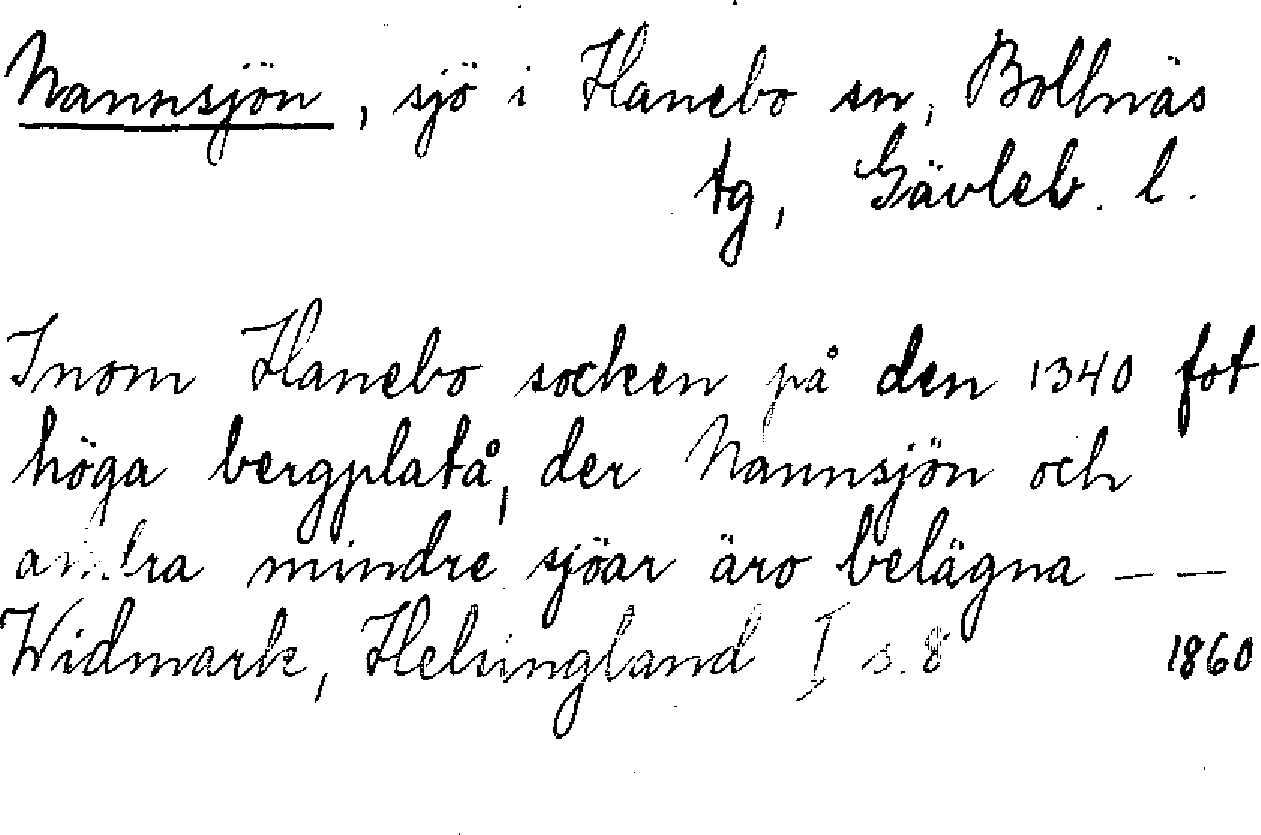 Nannsjön, sjö i Hanebo sn, Bollnäs
tg, Gävleb. l.
Inom Hanebo socken på den 1340 fot
höga bergplatå, der Nannsjön och
andra mindre sjöar äro belägna — —
Widmark, Helsingland I s. 8 1860